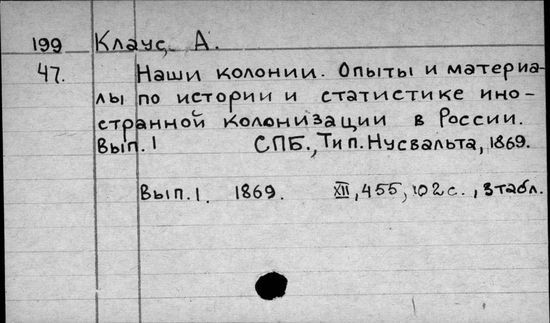 199 Клаус, А.
47. Наши колонии. Опыты и материа-
лы по истории и статистике ино-
странной колонизации в России.
Вып.1 СПБ., Тип. Нусвальта, 1869.
Вып.1. 1869. XII, 455, 102с., 3табл.